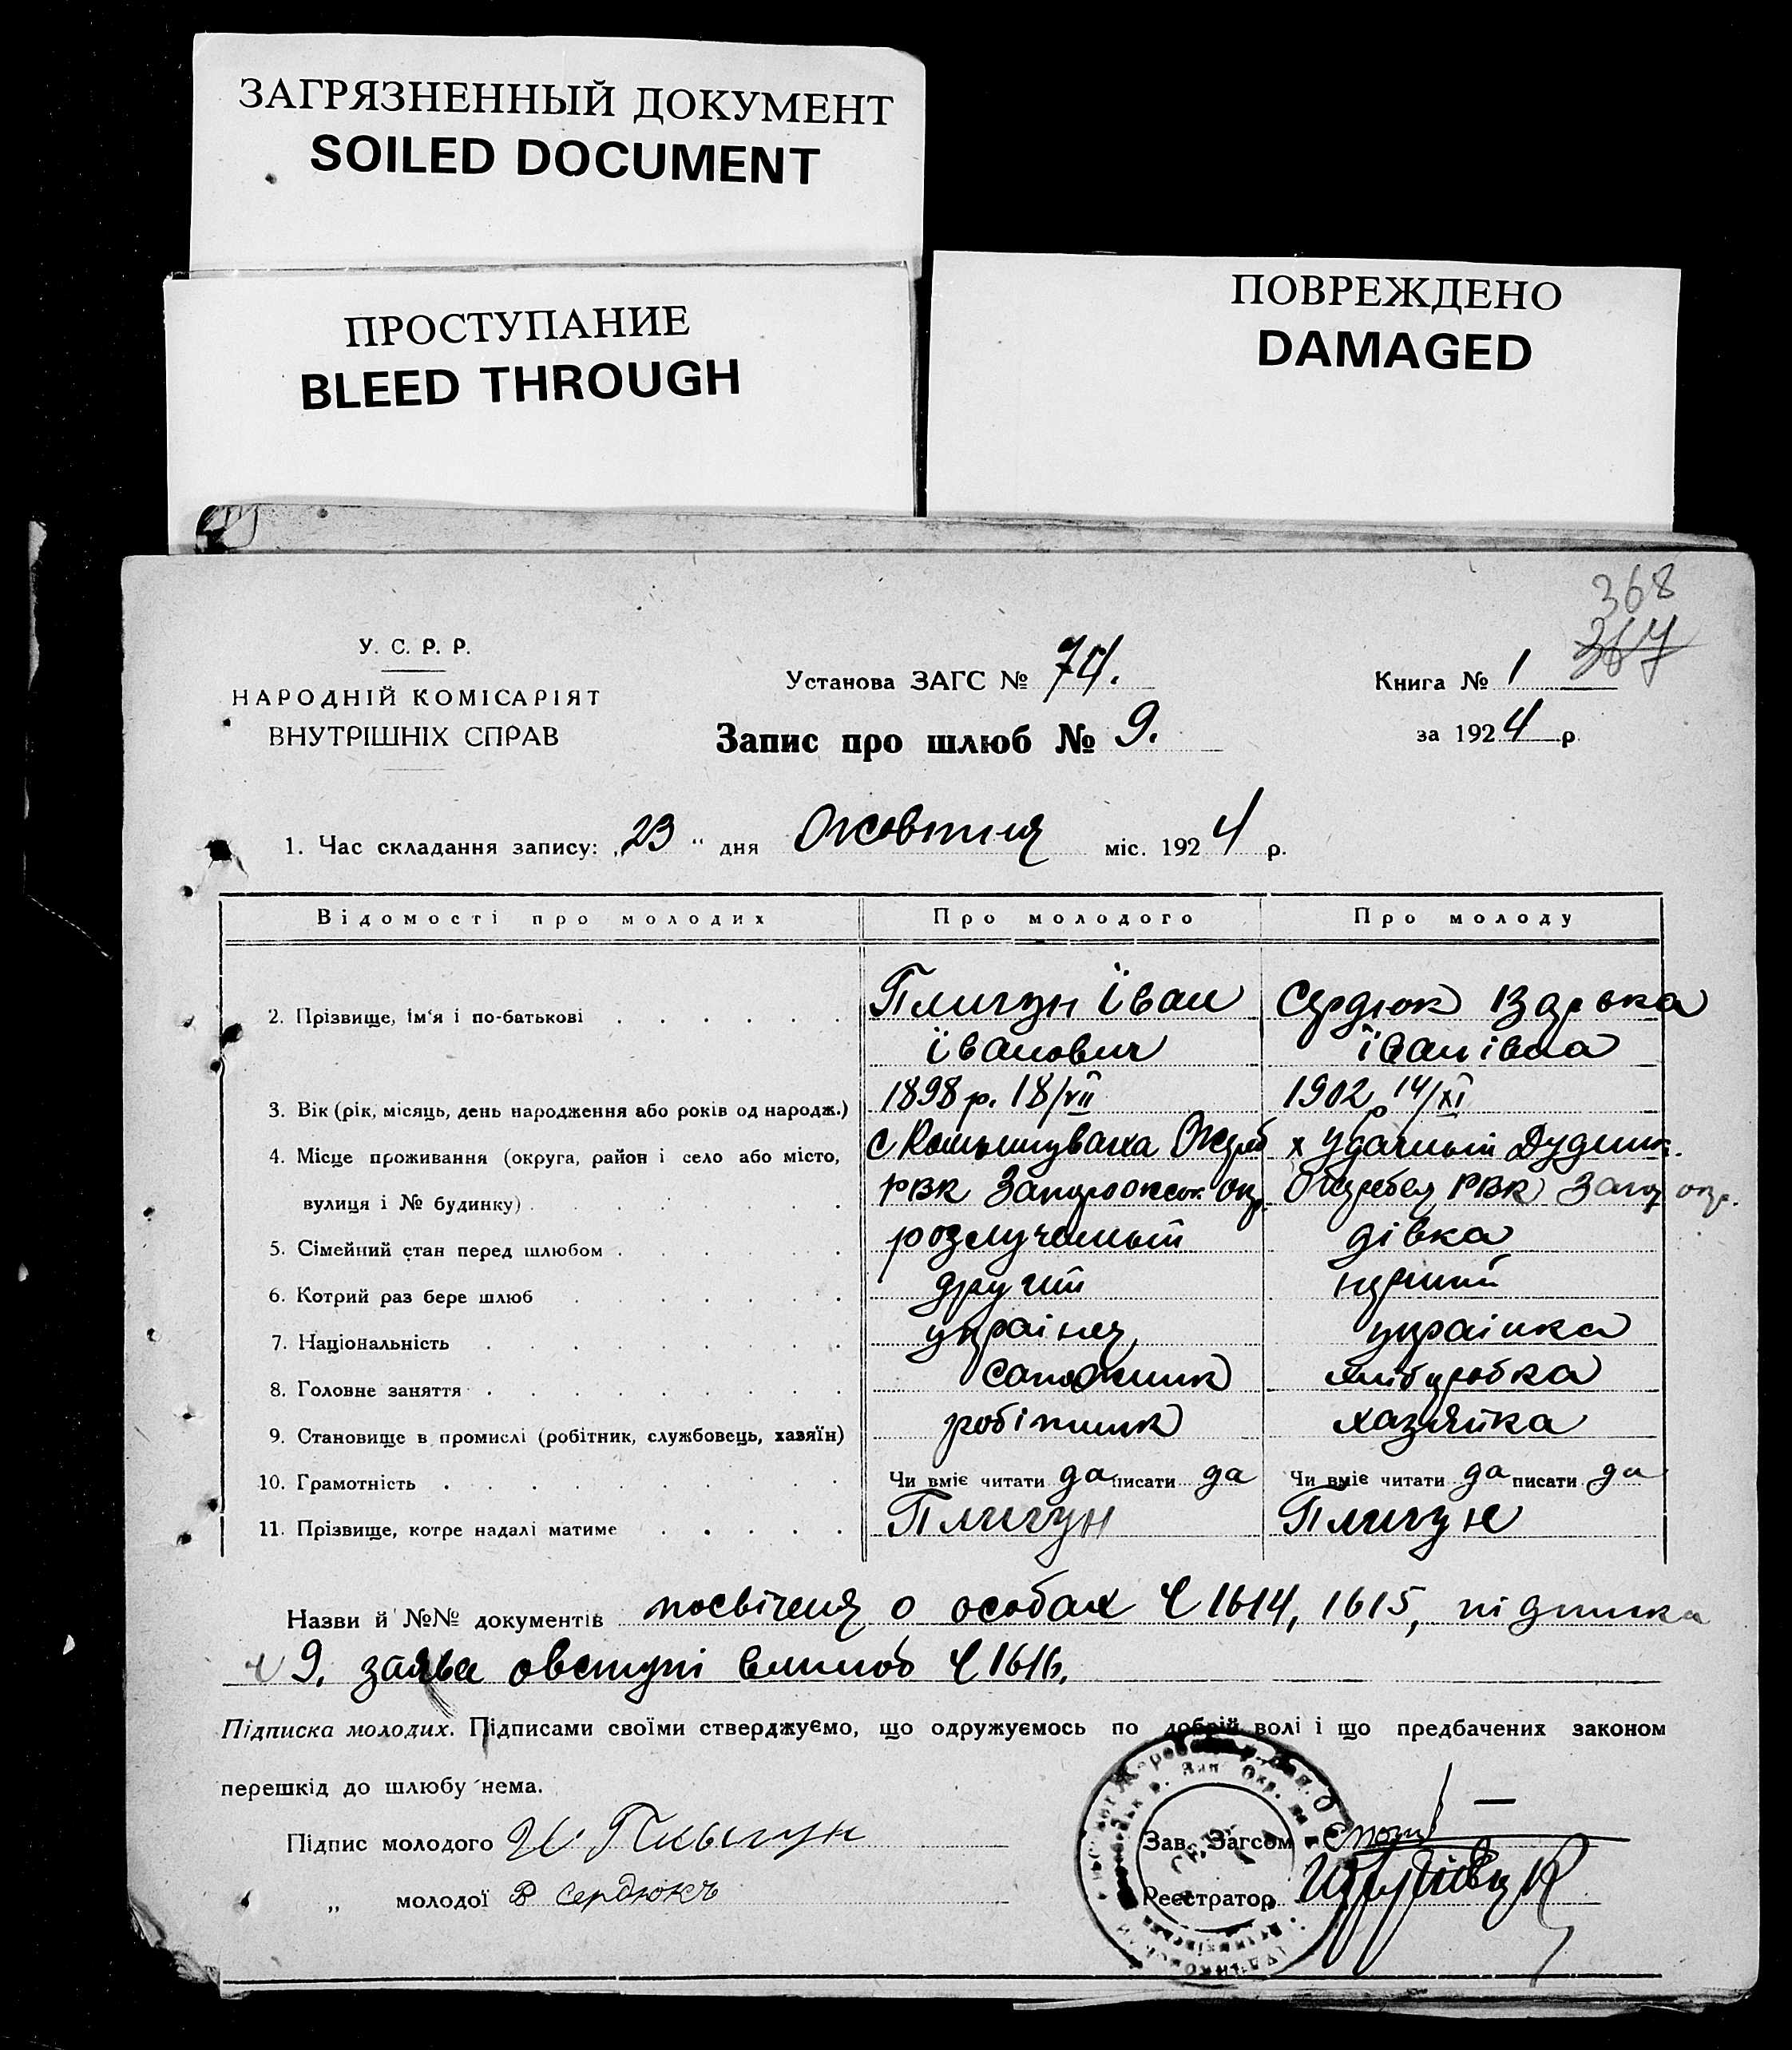 ЗАГРЯЗНЕННЫЙ ДОКУМЕНТ
SOILED DOCUMENT
ПРОСТУПАНИЕ
BLEED THROUGH
ПОВРЕЖДЕНО
DAMAGED
368
367
У. С. Р. Р.
НАРОДНІЙ КОМІСАРІЯТ
ВНУТРІШНІХ СПРАВ
Установа ЗАГС № 74.
Запис про шлюб № 9.
Книга № 1
за 1924 р.
1. Час складання запису: „23" дня Жовтня міс. 1924 р.
Відомості про молодих Про молодого Про молоду
2. Прізвище, ім'я і по-батькові Плигун Іван Сердюк Варька
Іванович Іванівна
3. Вік (рік, місяць, день народження або років од народж.) 1898 р. 18/VII 1902 р 14/XI
4. Місце проживання (округа, район і село або місто, с Комишуваха Жереб х Удачный Дудник.
вулиця і № будинку) РВК Запорожськ. Окр. Жеребец РВК Запор окр.
5. Сімейний стан перед шлюбом розлученый дівка
6. Котрий раз бере шлюб другий перший
7. Національність українец українка
8. Головне заняття сапожник хлиборобка
9. Становище в промислі (робітник, службовець, хазяїн) робітник хазяйка
10. Грамотність Чи вміє читати да писати да Чи вміє читати да писати да
11. Прізвище, котре надалі матиме Плигун Плигун
Назви й №№ документів посвіченя о особах Ч 1614, 1615, підписка
Ч 9. заява овступі вшлюб Ч 1616.
Підписка молодих. Підписами своїми стверджуємо, що одружуємось по добрій волі і що предбачених законом
перешкід до шлюбу нема.
Підпис молодого И Плыгун
Зав. Загсом
„ молодої В Сердюкъ
Реєстратор